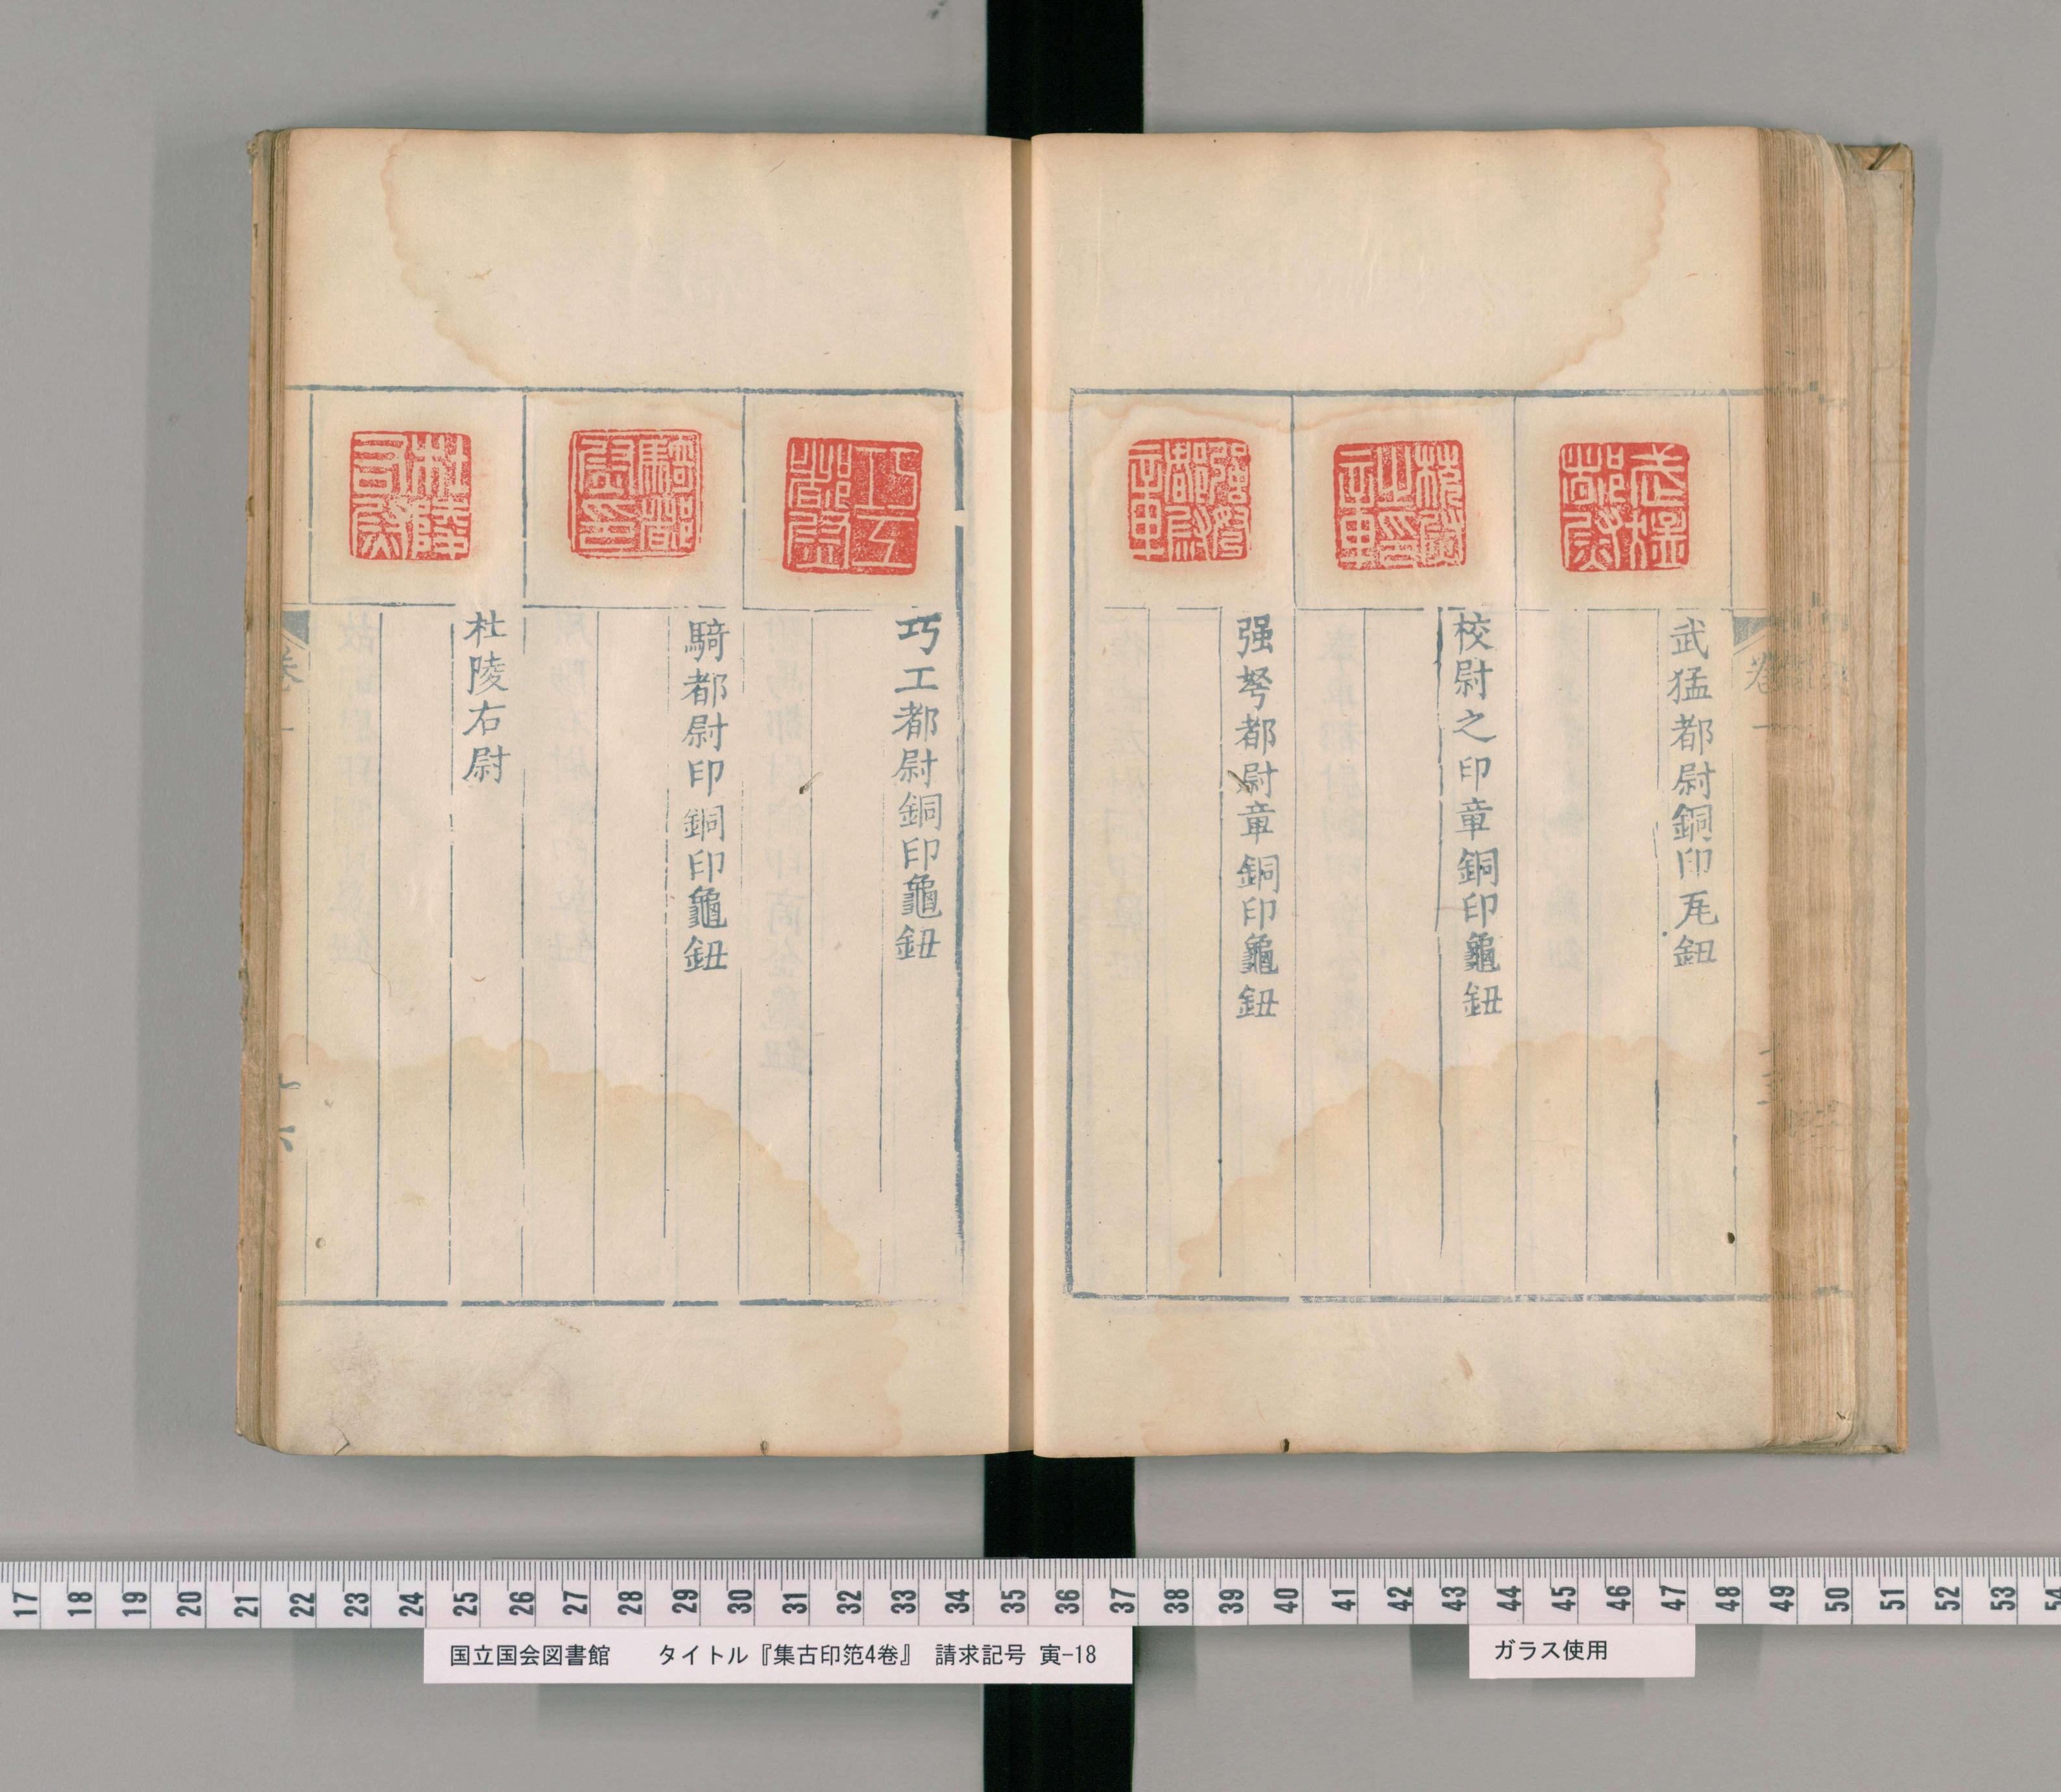 武猛都尉銅印瓦鈕
校尉之印章銅印龜鈕
强弩都尉章銅印龜鈕
巧工都尉銅印龜鈕
騎都尉印銅印龜鈕
杜陵右尉
17 18 19 20 21 22 23 24 25 26 27 28 29 30 31 32 33 34 35 36 37 38 39 40 41 42 43 44 45 46 47 48 49 50 51 52 53 54
国立国会図書館 タイトル『集古印笵4巻』 請求記号 寅-18
ガラス使用